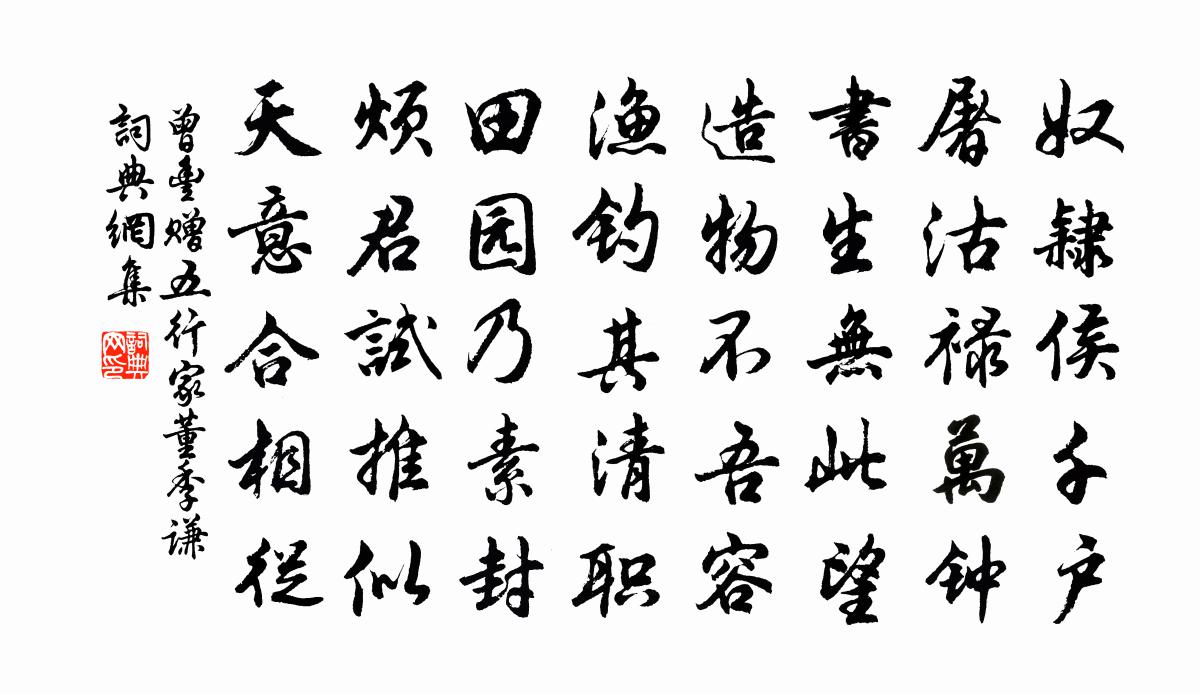 奴隸侯千户
屠沽禄萬钟
書生無此望
造物不吾容
渔钓其清职
田园乃素封
烦君試推似
天意合相従
曾豐赠五行家董季谦
詞典網集
詞典网印